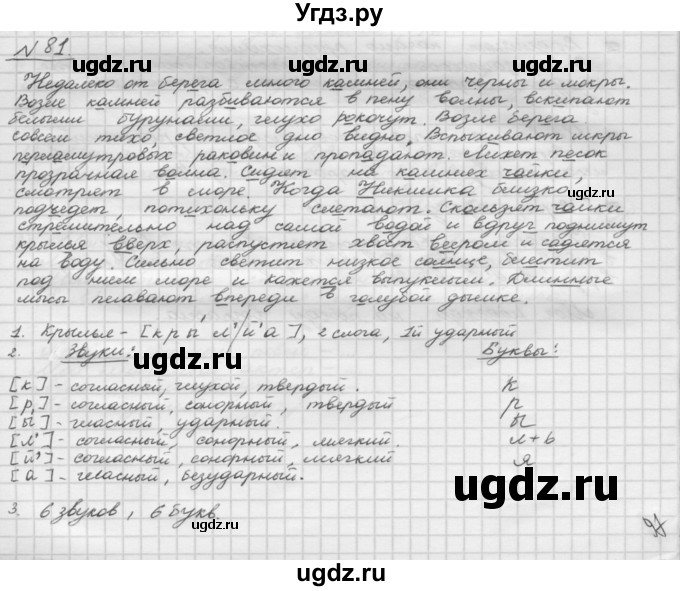 Угдз.ру
№ 81
Недалеко от берега много камней, они черны и мокры.
Возле камней разбиваются в пену волны, вскипают
белыми бурунами, глухо рокочут. Возле берега
совсем тихо, светлое дно видно. Вспыхивают искры
перламутровых раковин и пропадают. Лижет песок
прозрачная волна. Сидят на камнях чайки,
смотрят в море. Когда Никишка близко
подчедет, потихоньку слетают. Скользят чайки
стремительно над самой водой и вдруг поднимут
крылья вверх, распустят хвост веером и садятся
на воду. Сильно светит низкое солнце, блестит
под ним море и кажется выпуклым. Длинные
мысы плавают впереди в голубой дымке.
1. Крылья - [кры́л'/й'а], 2 слога, 1й ударный
2. Звуки: Буквы:
[к] - согласный, глухой, твердый. к
[р] - согласный, сонорный, твердый р
[ы] - гласный, ударный. ы
[л'] - согласный, сонорный, мягкий. л+ь
[й'] - согласный, сонорный, мягкий я
[а] - гласный, безударный.
3. 6 звуков, 6 букв
ugdz.ru
ugdz.ru
ugdz.ru
ugdz.ru
ugdz.ru
ugdz.ru
ugdz.ru
ugdz.ru
ugdz.ru
ugdz.ru
ugdz.ru
ugdz.ru
ugdz.ru
ugdz.ru